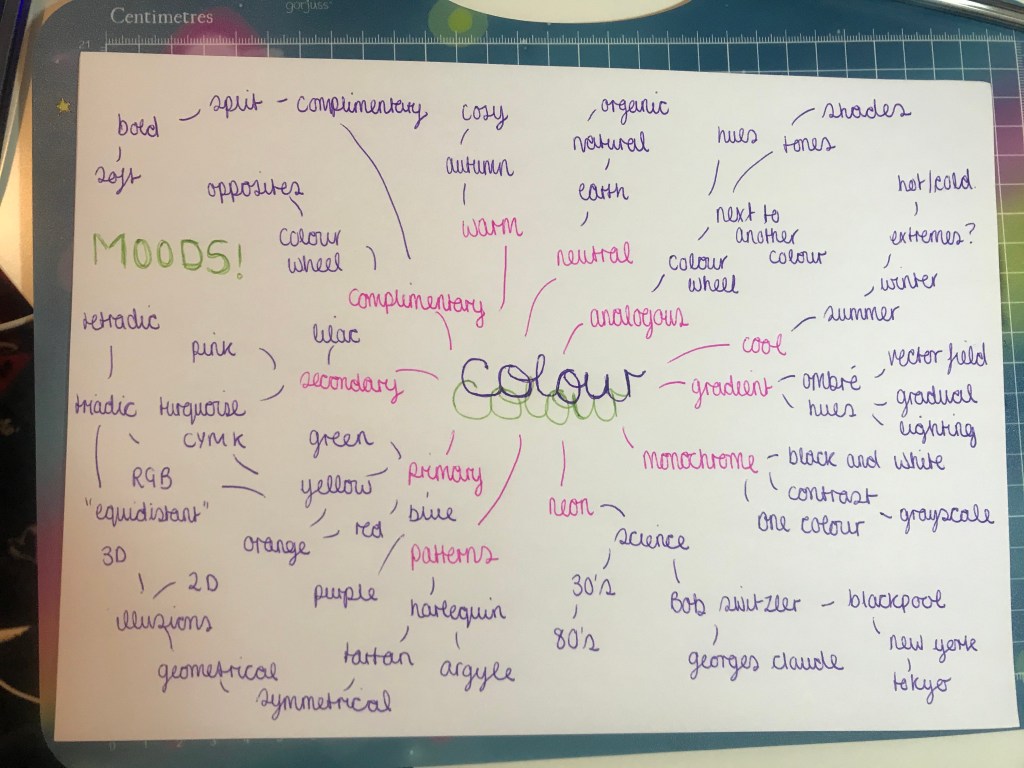 Centimetres
gorjuss
21
split - complimentary
bold
soft
opposites
colour
wheel
complimentary
MOODS!
cosy
autumn
warm
organic
natural
earth
neutral
hues
shades
tones
next to
another
colour
colour
wheel
analogous
hot/cold
extremes?
winter
summer
cool
tetradic
triadic
"equidistant"
pink
lilac
secondary
turquoise
CYMK
RGB
colour
colour
gradient
ombré
hues
vector field
gradual
lighting
monochrome
black and white
contrast
one colour
grayscale
green
yellow
primary
blue
red
orange
purple
patterns
harlequin
tartan
argyle
symmetrical
geometrical
illusions
3D
2D
neon
science
30's
80's
Bob switzler
georges claude
blackpool
new york
tokyo
0 1 2 3